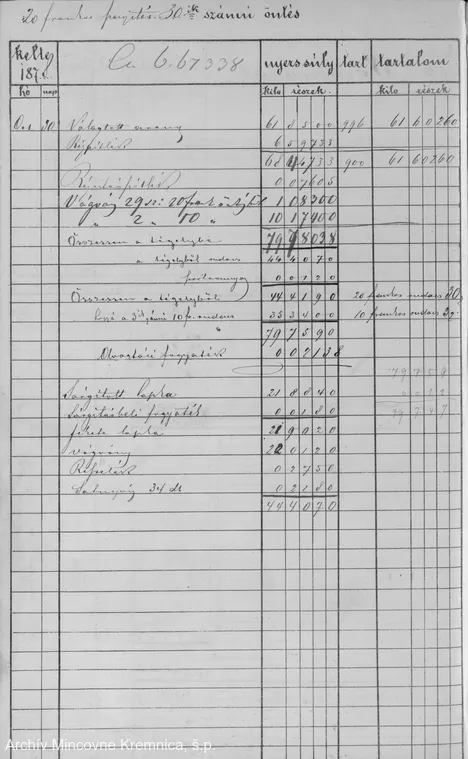 20 frankos pengetés 30ik számú öntés
kelte, 187 Cu 6.67338 nyers súly tart tartalom
hó nap kilo részek. kilo részek.
Oct 20 Válogtott arany 61 8 5 0 0 996 61 6 0 2 6 0
Réz 6 5 9 7 3 3
68 4 4 7 3 3 900 61 6 0 2 6 0
0 0 7 6 0 5
Vágvány 29 sz: 20 frank 1 0 8 3 0 0
" 2 " 10 " 10 1 7 9 0 0
Összessen a tégelybe 79 7 8 0 3 8
a tégelyből rudacs 44 4 0 7 0
0 0 1 2 0
Összessen a tégelyből 44 4 1 9 0 20 frankos rudacs 30
3ik számú 10 frankos 35 3 4 0 0 10 frankos rudacs 3
79 7 5 9 0
Olvasztási fogyaték 0 0 2 1 3 8
79 7 5 9
Sárgított lapka 21 8 8 4 0
Sárgításbeli fogyaték 0 0 1 8 0 79 7 4 7
fekete lapka 21 9 0 2 0
vágvány 22 0 1 2 0
0 2 7 5 0
34 dt 0 2 1 8 0
44 4 0 7 0
Archív Mincovne Kremnica, š.p.